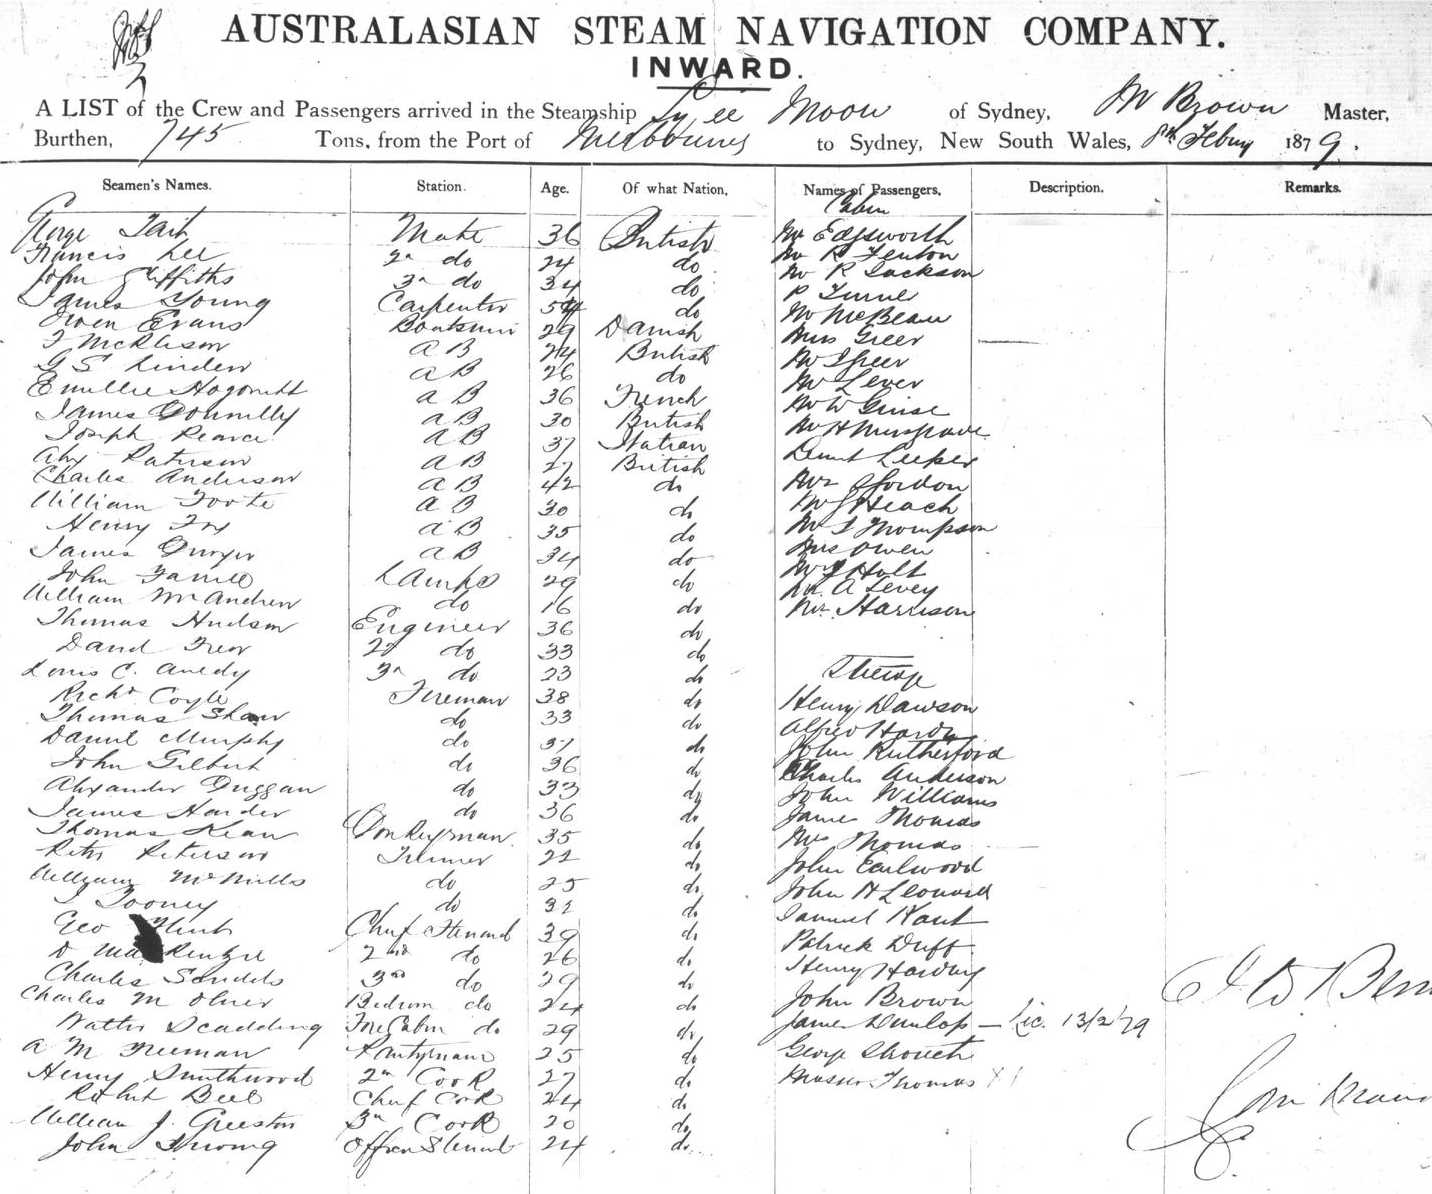 AUSTRALASIAN STEAM NAVIGATION COMPANY.
INWARD.
A LIST of the Crew and Passengers arrived in the Steamship Ly ee Moon of Sydney, M Brown Master,
Burthen, 745 Tons, from the Port of Melbourne to Sydney, New South Wales, 8th Febuy 1879.
Seamen's Names. Station. Age. Of what Nation. Names of Passengers. Description. Remarks.
Cabin
George Tait Mate 36 British Mr Edgsworth
Francis Lee 2n do 24 do Mr R Fenton
John Griffiths 3n do 34 do Mr R Jackson
James Young Carpenter do R Turner
Owen Evans 29 Danish Mr McBean
A B 24 British Miss Greer
G S Linden A B 26 do Mr Greer
Emillie A B 36 French Mr Lever
James Donnelly A B 30 British Mr W Guise
Joseph Pearce A B 37 Italian Mr H Musgrave
Alex Paterson A B 27 British Leeper
Charles Anderson A B 42 do Mrs Gordon
William Foote A B 30 do Mr G Heach
Henry Fox A B 35 do Mr T Thompson
James Dwyer A B 34 do Mrs Owen
John Farrell Lamps 29 do Mr J Holt
William McAndrew do 16 do Mr A Levey
Thomas Hudson Engineer 36 do Mrs Harrison
David 2d do 33 do
Louis C. 3n do 23 do Steerage
Richd Coyle Fireman 38 do Henry Dawson
Thomas Shaw do 33 do Alfred Hardy
Daniel Murphy do 37 do John Rutherford
John Gilbert do 36 do Charles Anderson
Alexander Duggan do 33 do John Williams
James Harder do 36 do James Thomas
Thomas Kean Donkeyman 35 do Mrs Thomas
Peter Peterson Trimer 22 do John Earlwood
William McMills do 25 do John H Leonard
J Tooney do 32 do Samuel Hunt
Geo Flint Chief Steward 39 do Patrick Duff
D Mackenzie 2nd do 26 do Henry Harding
Charles Sandels 3rd do 29 do John Brown
Charles M Oliver Bedrom do 24 do James Dunlop – Lic. 13/2/79
Walter Scadding Fre Cabin do 29 do George
A M Freeman Pantryman 25 do Master Thomas
Henry Smithwood 2n Cook 27 do
Robert Bell Chief Cook 24 do
William J. Greeston 3n Cook 20 do
John Officers Steward 24 do